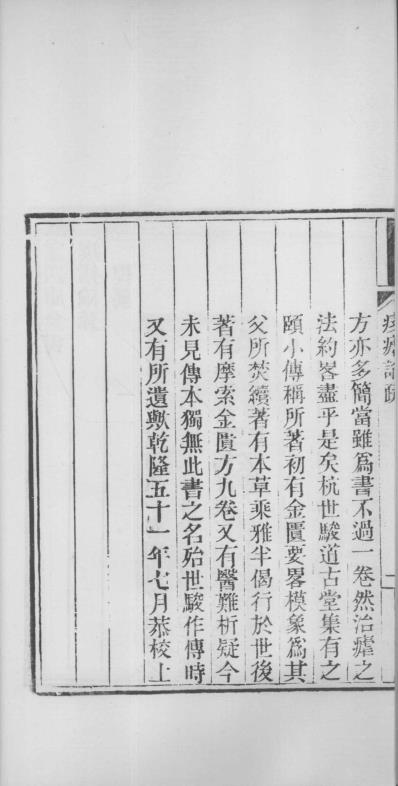 痎瘧論疏
方亦多簡當雖爲書不過一卷然治瘧之
法約畧盡乎是矣杭世駿道古堂集有之
頤小傳稱所著初有金匱要畧模象爲其
父所焚續著有本草乘雅半偈行於世後
著有摩索金匱方九卷又有醫難析疑今
未見傳本獨無此書之名殆世駿作傳時
又有所遺歟乾隆五十一年七月恭校上